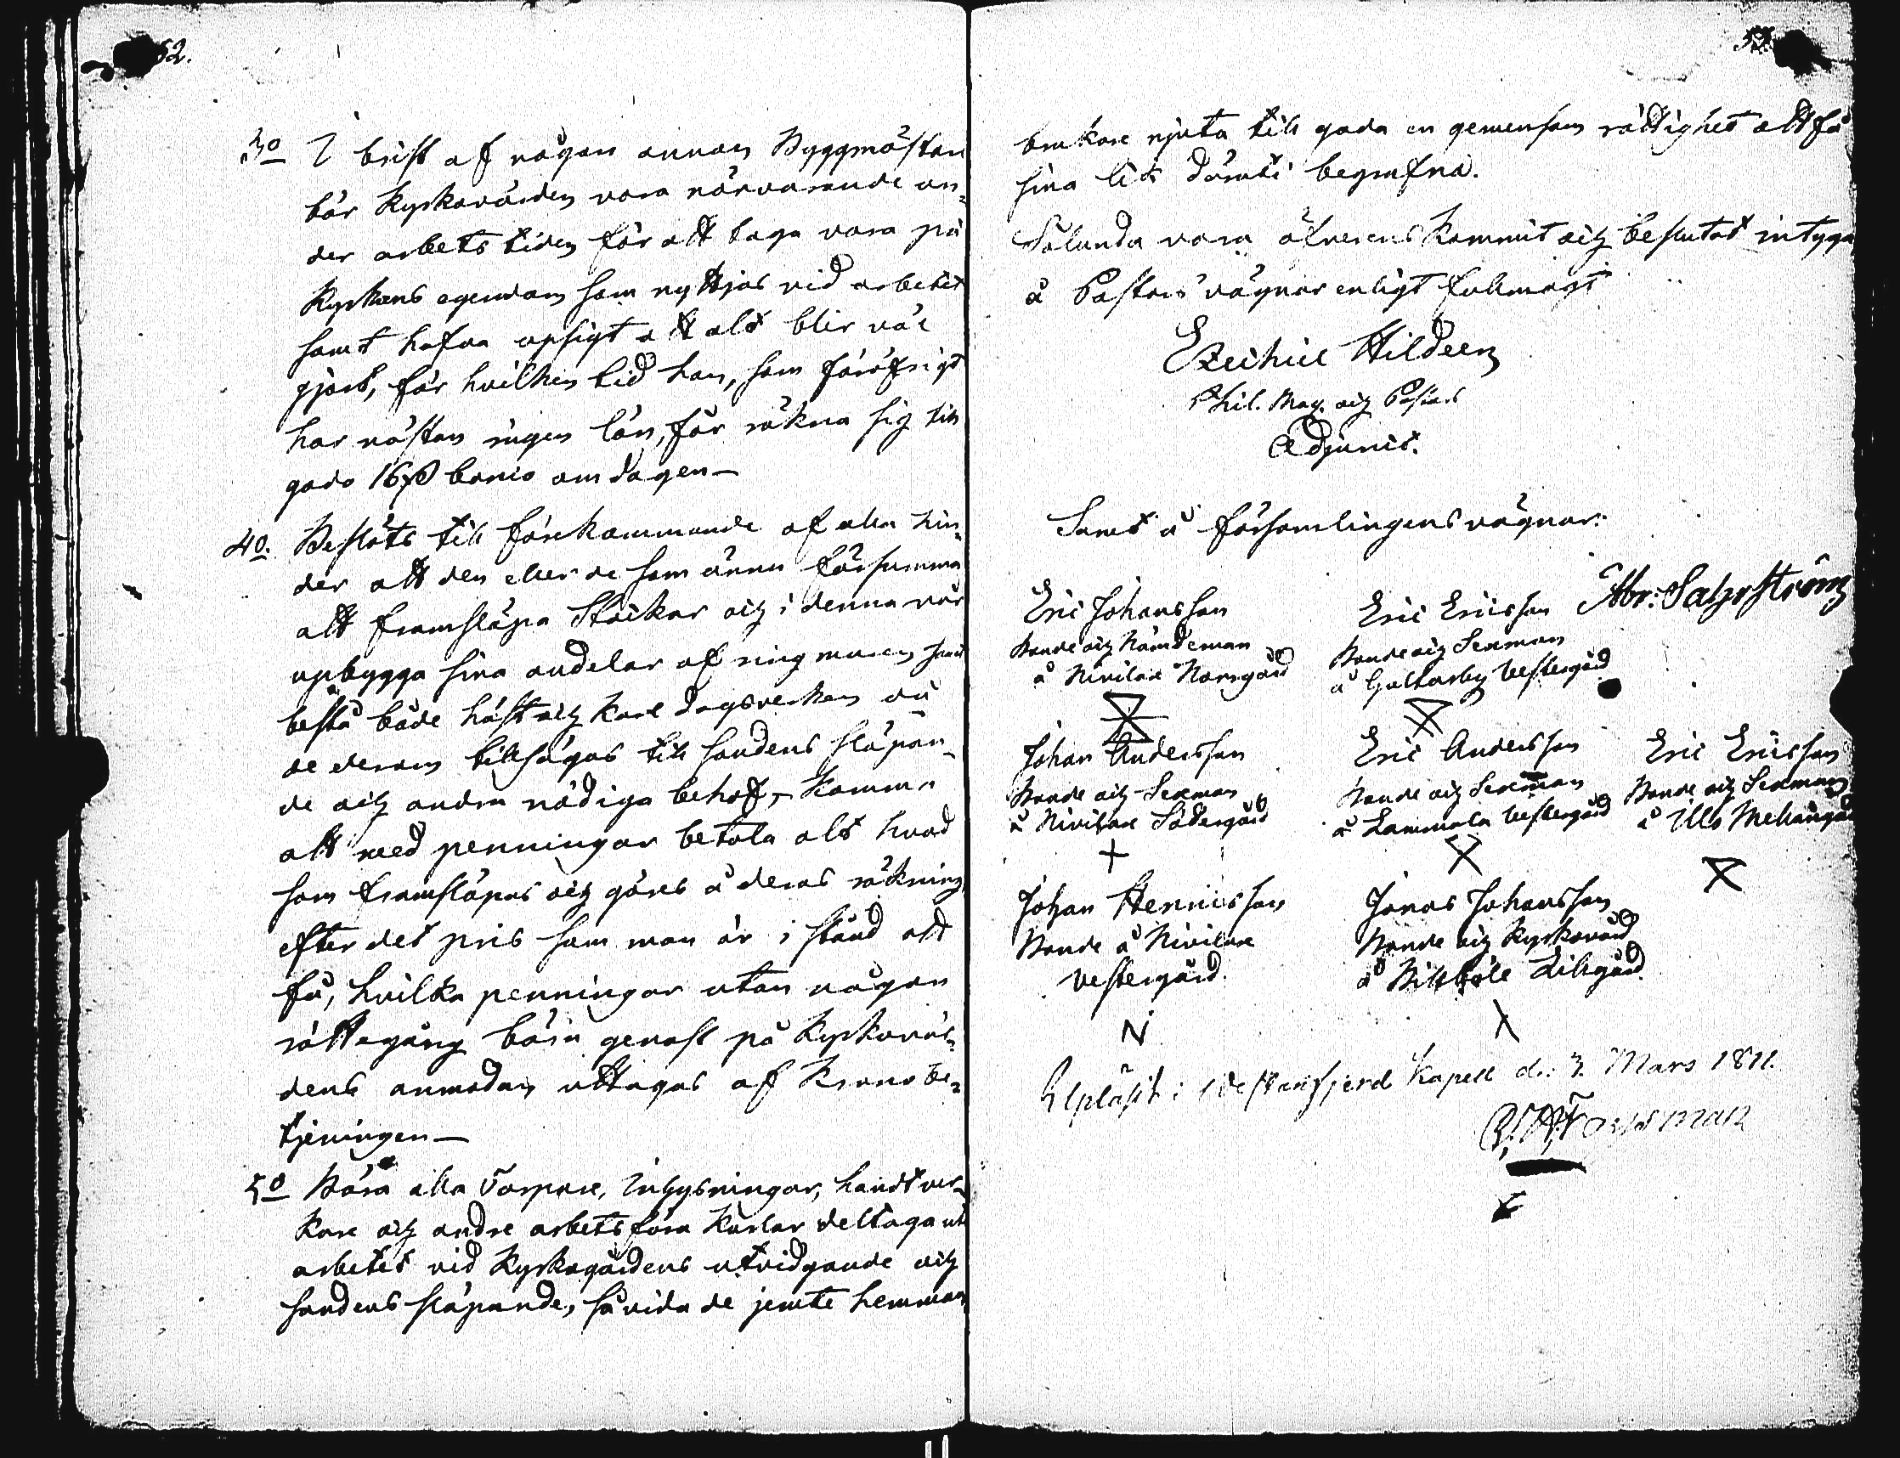 52.
3o I brist af någon annan Byggmästare
bör Kyrkovärden vara närvarande un=
der arbets tiden för att taga vara på
Kyrkans egendom som nyttjas vid arbetet
samt hafva upsigt att alt blir väl
gjort, för hvilken tid han, som föröfrigt
har nästan ingen lön, får räkna sig till
godo 16 ß banco om dagen —
4o. Beslöts till förekommande af alla hin=
der att den eller de som ännu försumma
att framsläpa Stockar och i denna vår
upbygga sina andelar af ringmuren samt
bestå både häst och Karl dagsverken då
de derom tillsägas till sandens släpan=
de och andra nödiga behof, — komma
att med penningar betala alt hvad
som framsläpas och göres å deras räkning
efter det pris som man är i stånd att
få, hvilka penningar utan någon
rättegång böra genast på Kyrkovär=
dens anmodan uttagas af Krono be=
tjeningen —
5o Böra alla Torpare, Inhysningar, handtver=
kare och andre arbetsföra Karlar deltaga uti
arbetet vid Kyrkogårdens utvidgande och
sandens släpande, såvida de jemte hemmans
53.
brukare njuta till godo en gemensam rättighet att få
sina lik däruti begrafna.
Sålunda vara öfverens Kommit och beslutat intyga
å Pastors vägnar enligt fullmagt
Ezechiel Hildeen
Phil. Mag. och Pastors
Adjunct.
Samt å församlingens vägnar:
Eric Johansson
Bonde och Nämdeman
å Nivelax Norrgård
Eric Ericsson
Bonde och Sexman
å Galtarby Vestergård
Abr: Sahrström
Johan Andersson
Bonde och Sexman
å Nivelax Södergård
Eric Andersson
Bonde och Sexman
å Lammala Vestergård
Eric Ericsson
Bonde och Sexman
å Illo Mellangård
Johan Henricsson
Bonde å Nivelax
Vestergård.
Jonas Johansson
Bonde och Kyrkovärd
å Billböle Lillgård.
Upläsit i Westanfjerd Kapell d: 3. Mars 1811.
Forsman